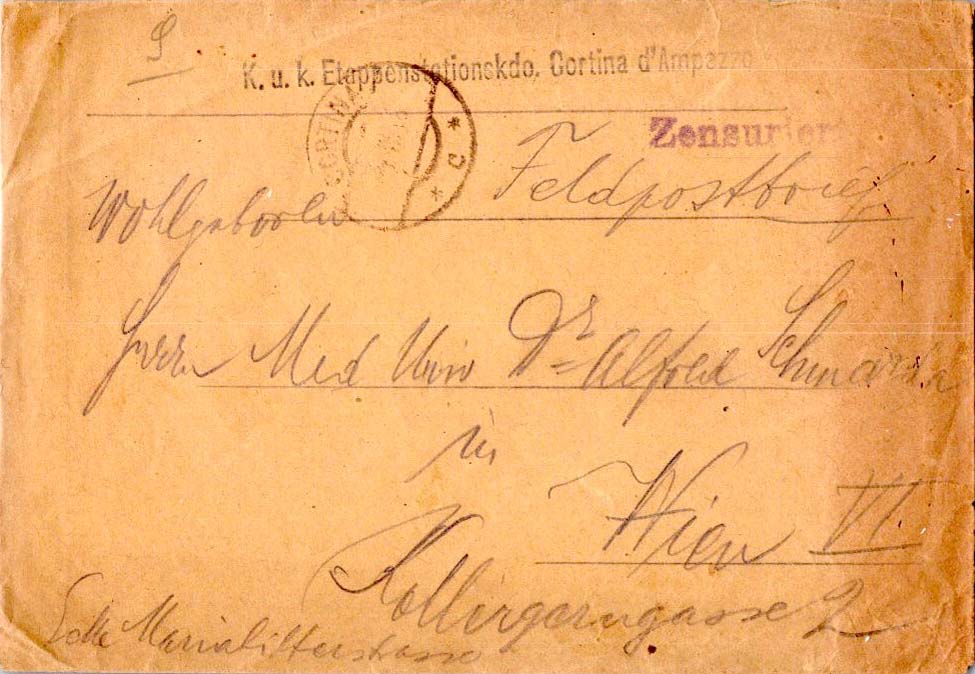 K. u. k. Etappenstationskdo. Cortina d'Ampezzo
CORTINA
* c *
Zensuriert
Feldpostbrief
Wohlgeboren
Herrn Med Univ Dr Alfred
in
Wien VI
Kollergerngasse 2
Ecke Mariahilferstrasse